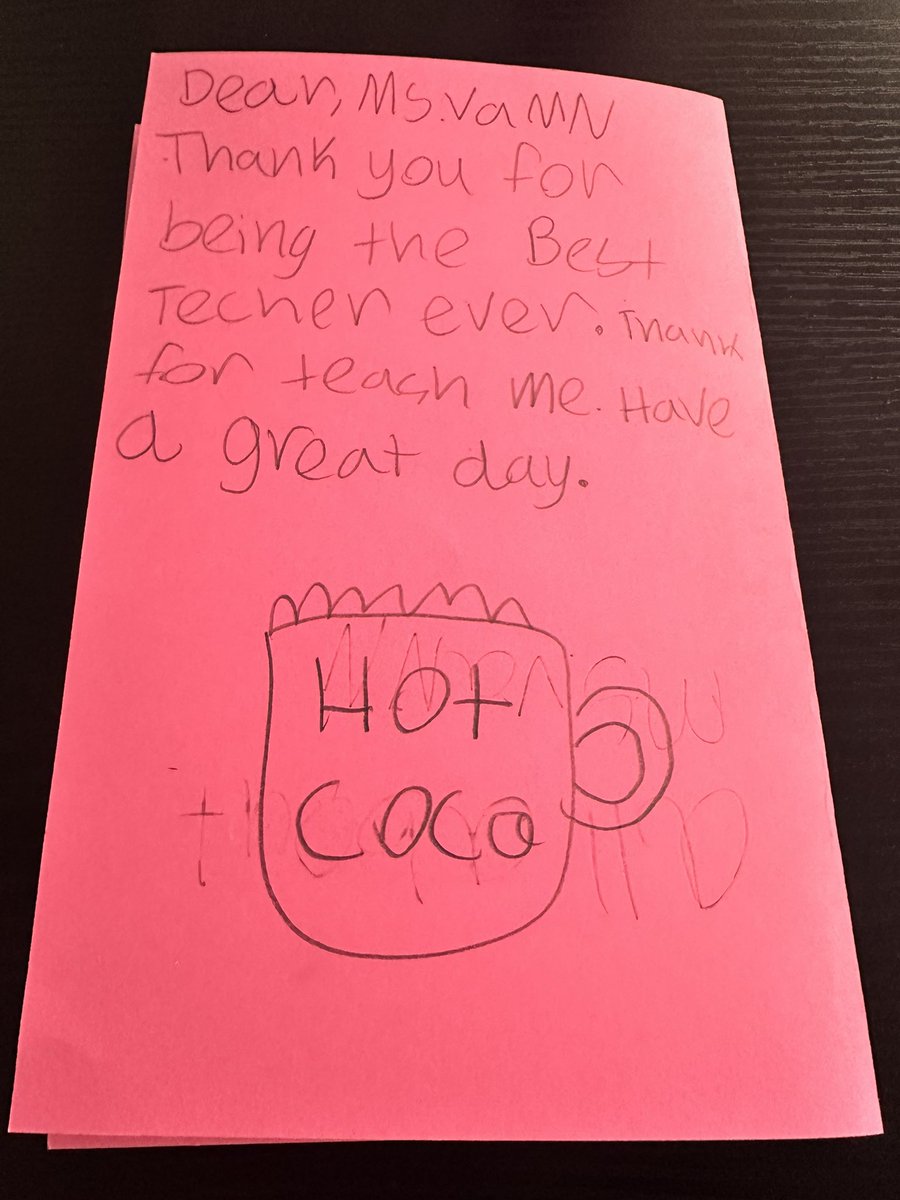 Dear, Ms. VaMN
Thank you for
being the Best
Techer ever. Thank
for teach me. Have
a great day.
HOt
COCo